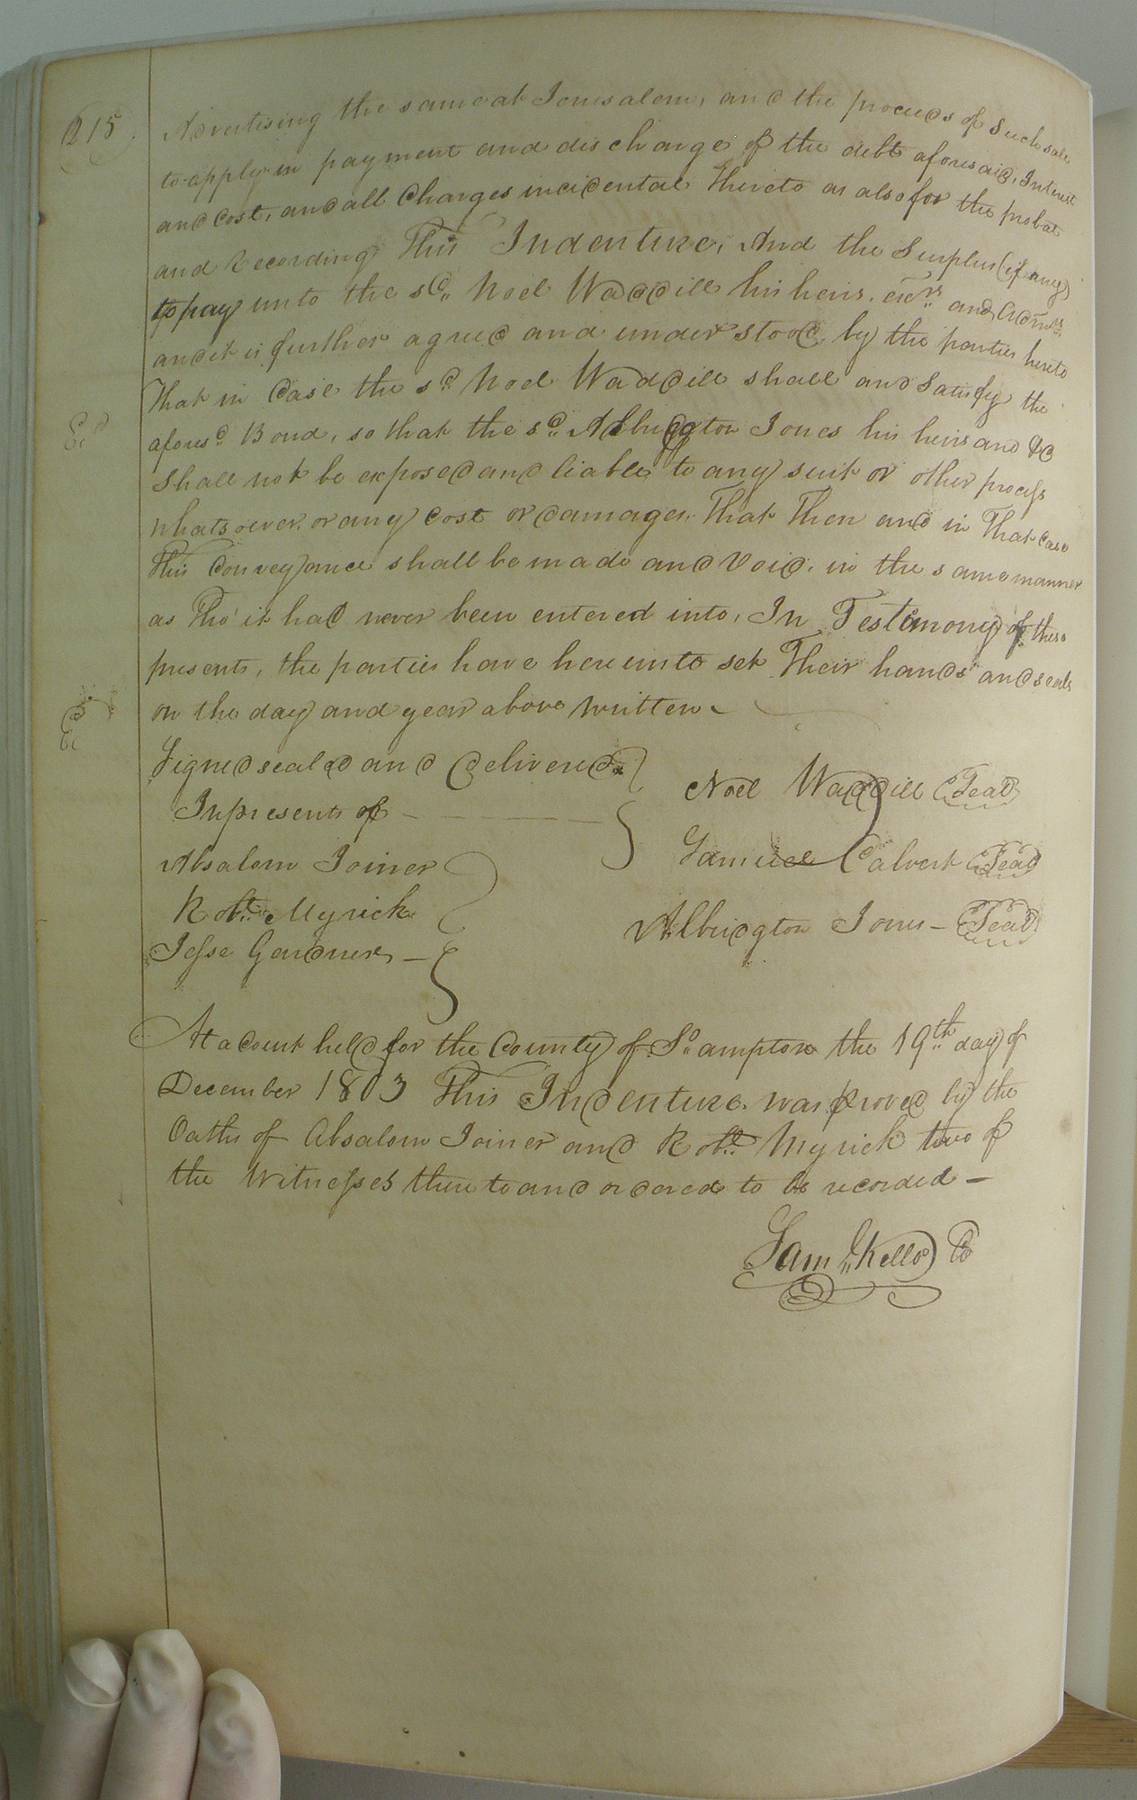 215.
Advertising the same at Jerusalem, and the proceeds of Such sale
to apply in payment and discharge of the debt aforesaid, Interest
and Cost, and all Charges incidental thereto as also for the probat
and Recording This Indenture, And the Surplus (if any)
to pay unto the sd. Noel Waddill his heirs, exrs. and Admrs.
and it is further agreed and understood by the parties hereto
That in Case the sd. Noel Waddill shall and Satisfy the
aforesd. Bond, so that the sd. Albridgton Jones his heirs and &c
Shall not be exposed and liable to any suit or other process
whatsoever, or any Cost or damages, That Then and in That Case
This Conveyance shall be made and Void, in the same manner
as Tho' it had never been entered into, In Testimony of these
presents, the parties have hereunto set Their hands and seals
on the day and year above written
Signed sealed and delivered
In presents of
Absalom Joiner
Robt. Myrick
Jesse Gardner
Noel Waddill Seal
Samuel Calvert Seal
Albridgton Jones - Seal
At a Court held for the County of So.ampton the 19th day of
December 1803 This Indenture was proved by the
Oaths of Absalom Joiner and Robt. Myrick two of
the Witnesses thereto and ordered to be recorded -
Saml. Kello